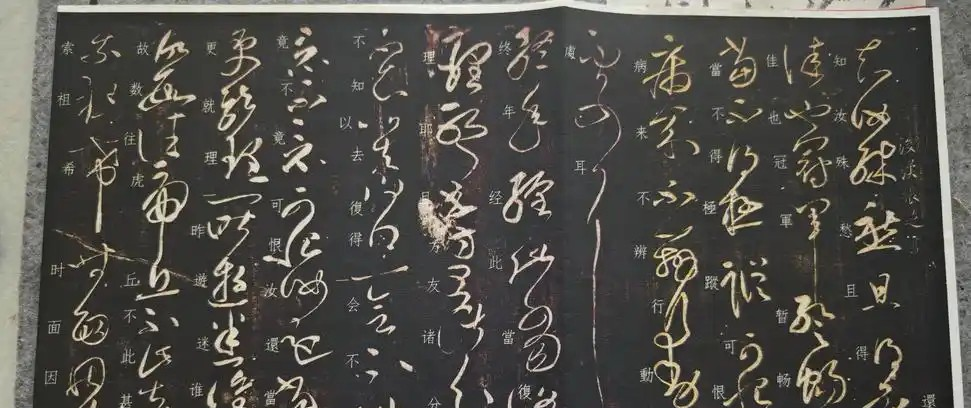 後漢張芝
知汝殊愁且得還
佳也冠軍暫暢
當不得極蹤可恨
病來不辨行動
處耳
終年経此當復
理耶且方友諸分
不知以去復得一会不
竟不竟可恨汝還當
更就理一昨遊迷誰
故数往虎丘不此甚
索祖希时面因